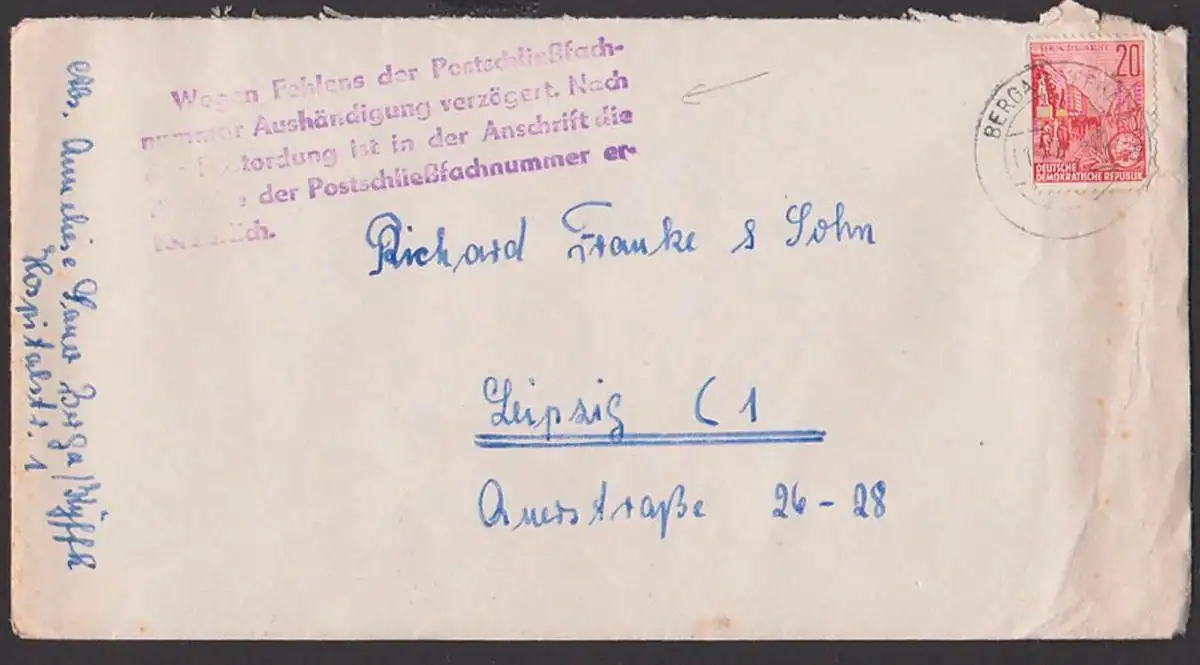 Wegen Fehlens der Postschließfach-
nummer Aushändigung verzögert. Nach
Postordung ist in der Anschrift die
der Postschließfachnummer er-
Richard Franke & Sohn
Leipzig C 1
Querstraße 26-28
Abs. Anneliese Berga/
Hospitalstr. 1
20
DEUTSCHE
DEMOKRATISCHE REPUBLIK
BERGA